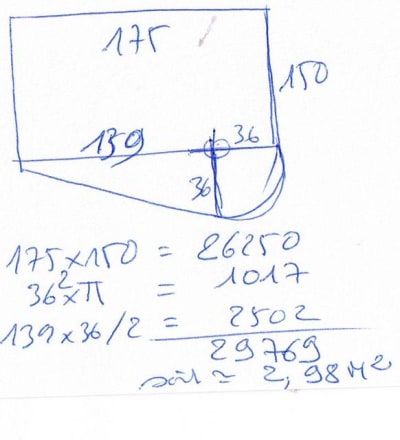 175
150
139 36
36
175x150 = 26250
36²xπ = 1017
139x36/2 = 2502
29769
≈ 2,98 M²